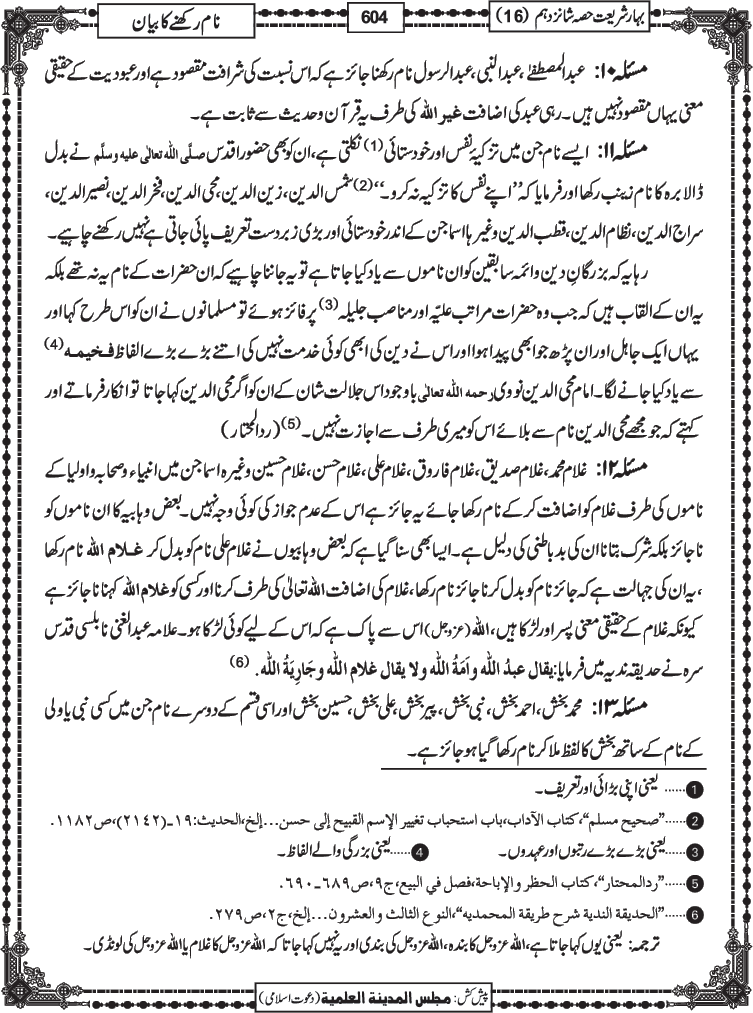 بہارِ شریعت حصہ شانزدہم (16)
604
نام رکھنے کا بیان
مسئلہ ۱۰: عبدالمصطفےٰ، عبدالنبی، عبدالرسول نام رکھنا جائز ہے کہ اس نسبت کی شرافت مقصود ہے اور عبودیت کے حقیقی
معنی یہاں مقصود نہیں ہیں۔ رہی عبد کی اضافت غیر اللہ کی طرف یہ قرآن وحدیث سے ثابت ہے۔
مسئلہ ۱۱: ایسے نام جن میں تزکیۂ نفس اور خود ستائی (1) نکلتی ہے، ان کو بھی حضور اقدس صلَّی اللہ تعالٰی علیہ وسلَّم نے بدل
ڈالا برہ کا نام زینب رکھا اور فرمایا کہ ’’اپنے نفس کا تزکیہ نہ کرو۔‘‘ (2) شمس الدین، زین الدین، محی الدین، فخر الدین، نصیر الدین،
سراج الدین، نظام الدین، قطب الدین وغیرہا اسما جن کے اندر خود ستائی اور بڑی زبردست تعریف پائی جاتی ہے نہیں رکھنے چاہیے۔
رہا یہ کہ بزرگانِ دین وائمہ سابقین کو ان ناموں سے یاد کیا جاتا ہے تو یہ جاننا چاہیے کہ ان حضرات کے نام یہ نہ تھے بلکہ
یہ ان کے القاب ہیں کہ جب وہ حضرات مراتب علیّہ اور مناصب جلیلہ (3) پر فائز ہوئے تو مسلمانوں نے ان کو اس طرح کہا اور
یہاں ایک جاہل اور ان پڑھ جو ابھی پیدا ہوا اور اس نے دین کی ابھی کوئی خدمت نہیں کی اتنے بڑے بڑے الفاظ فخیمہ (4)
سے یاد کیا جانے لگا۔ امام محی الدین نووی رحمہ اللہ تعالٰی باوجود اس جلالت شان کے ان کو اگر محی الدین کہا جاتا تو انکار فرماتے اور
کہتے کہ جو مجھے محی الدین نام سے بلائے اس کو میری طرف سے اجازت نہیں۔ (5) (ردالمحتار)
مسئلہ ۱۲: غلام محمد، غلام صدیق، غلام فاروق، غلام علی، غلام حسن، غلام حسین وغیرہ اسما جن میں انبیاء و صحابہ و اولیا کے
ناموں کی طرف غلام کو اضافت کر کے نام رکھا جائے یہ جائز ہے اس کے عدم جواز کی کوئی وجہ نہیں۔ بعض وہابیہ کا ان ناموں کو
ناجائز بلکہ شرک بتانا ان کی بد باطنی کی دلیل ہے۔ ایسا بھی سنا گیا ہے کہ بعض وہابیوں نے غلام علی نام کو بدل کر غلام اللہ نام رکھا
، یہ ان کی جہالت ہے کہ جائز نام کو بدل کر ناجائز نام رکھا، غلام کی اضافت اللہ تعالیٰ کی طرف کرنا اور کسی کو غلام اللہ کہنا ناجائز ہے
کیونکہ غلام کے حقیقی معنی پسر اور لڑکا ہیں، اللہ (عزوجل) اس سے پاک ہے کہ اس کے لیے کوئی لڑکا ہو۔ علامہ عبدالغنی نابلسی قدس
سرہ نے حدیقہ ندیہ میں فرمایا: یقال عبدُ اللہ واَمَةُ اللہ ولا یقال غلام اللہ وجَارِیَةُ اللہ. (6)
مسئلہ ۱۳: محمد بخش، احمد بخش، نبی بخش، پیر بخش، علی بخش، حسین بخش اور اسی قسم کے دوسرے نام جن میں کسی نبی یا ولی
کے نام کے ساتھ بخش کا لفظ ملا کر نام رکھا گیا ہو جائز ہے۔
1 ...... یعنی اپنی بڑائی اور تعریف۔
2 ......”صحیح مسلم“، کتاب الآداب، باب استحباب تغییر الإسم القبیح إلی حسن...إلخ، الحدیث: ۱۹۔(۲۱۴۲)، ص۱۱۸۲.
3 ...... یعنی بڑے بڑے رتبوں اور عہدوں۔ 4 ...... یعنی بزرگی والے الفاظ۔
5 ......”ردالمحتار“، کتاب الحظر والإباحة، فصل في البیع، ج۹، ص۶۸۹۔۶۹۰.
6 ......”الحدیقة الندیة شرح طریقة المحمدیه“، النوع الثالث والعشرون...إلخ، ج۲، ص۲۷۹.
ترجمہ: یعنی یوں کہا جاتا ہے، اللہ عزوجل کا بندہ، اللہ عزوجل کی بندی اور یہ نہیں کہا جاتا کہ اللہ عزوجل کا غلام یا اللہ عزوجل کی لونڈی۔
پیش کش: مجلس المدینۃ العلمیۃ (دعوت اسلامی)